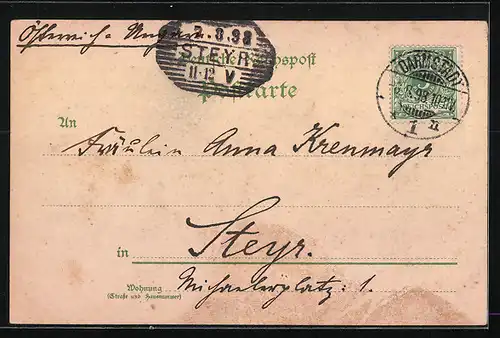 Österreich-Ungarn
7.8.98
STEYR
11-12 V
Deutsche Reichspost
Postkarte
DARMSTADT
1
An
Fräulein Anna Krenmayr
Steyr.
in
Wohnung
(Straße und Hausnummer)
Michaelerplatz: 1.